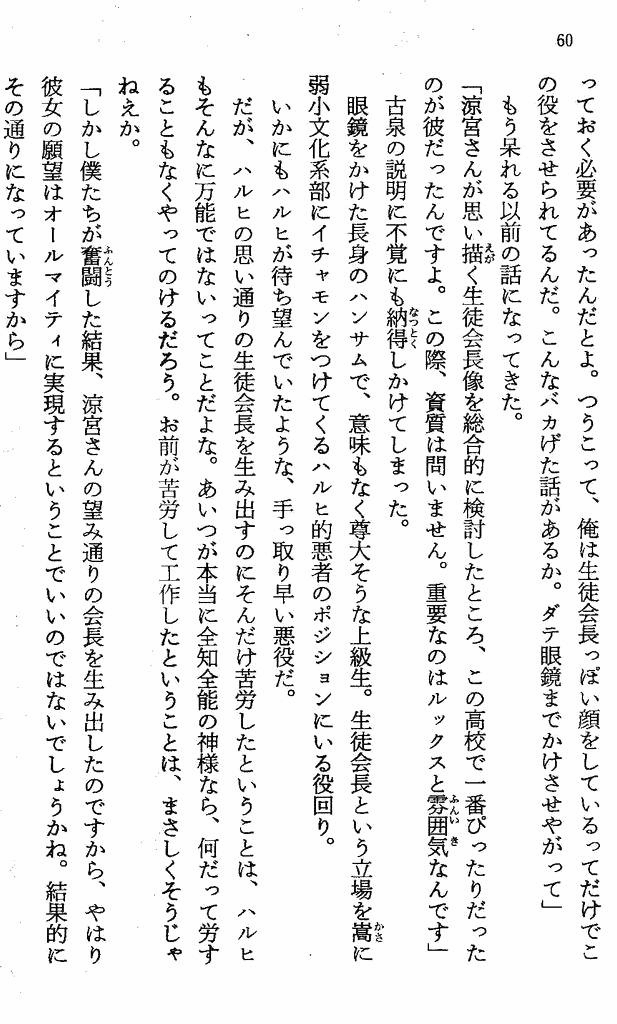 60
っておく必要があったんだとよ。つうこって、俺は生徒会長っぽい顔をしているってだけでこ
の役をさせられてるんだ。こんなバカげた話があるか。ダテ眼鏡までかけさせやがって」
もう呆れる以前の話になってきた。
「涼宮さんが思い描く生徒会長像を総合的に検討したところ、この高校で一番ぴったりだった
のが彼だったんですよ。この際、資質は問いません。重要なのはルックスと雰囲気なんです」
古泉の説明に不覚にも納得しかけてしまった。
眼鏡をかけた長身のハンサムで、意味もなく尊大そうな上級生。生徒会長という立場を嵩に
弱小文化系部にイチャモンをつけてくるハルヒ的悪者のポジションにいる役回り。
いかにもハルヒが待ち望んでいたような、手っ取り早い悪役だ。
だが、ハルヒの思い通りの生徒会長を生み出すのにそんだけ苦労したということは、ハルヒ
もそんなに万能ではないってことだよな。あいつが本当に全知全能の神様なら、何だって労す
ることもなくやってのけるだろう。お前が苦労して工作したということは、まさしくそうじゃ
ねえか。
「しかし僕たちが奮闘した結果、涼宮さんの望み通りの会長を生み出したのですから、やはり
彼女の願望はオールマイティに実現するということでいいのではないでしょうかね。結果的に
その通りになっていますから」